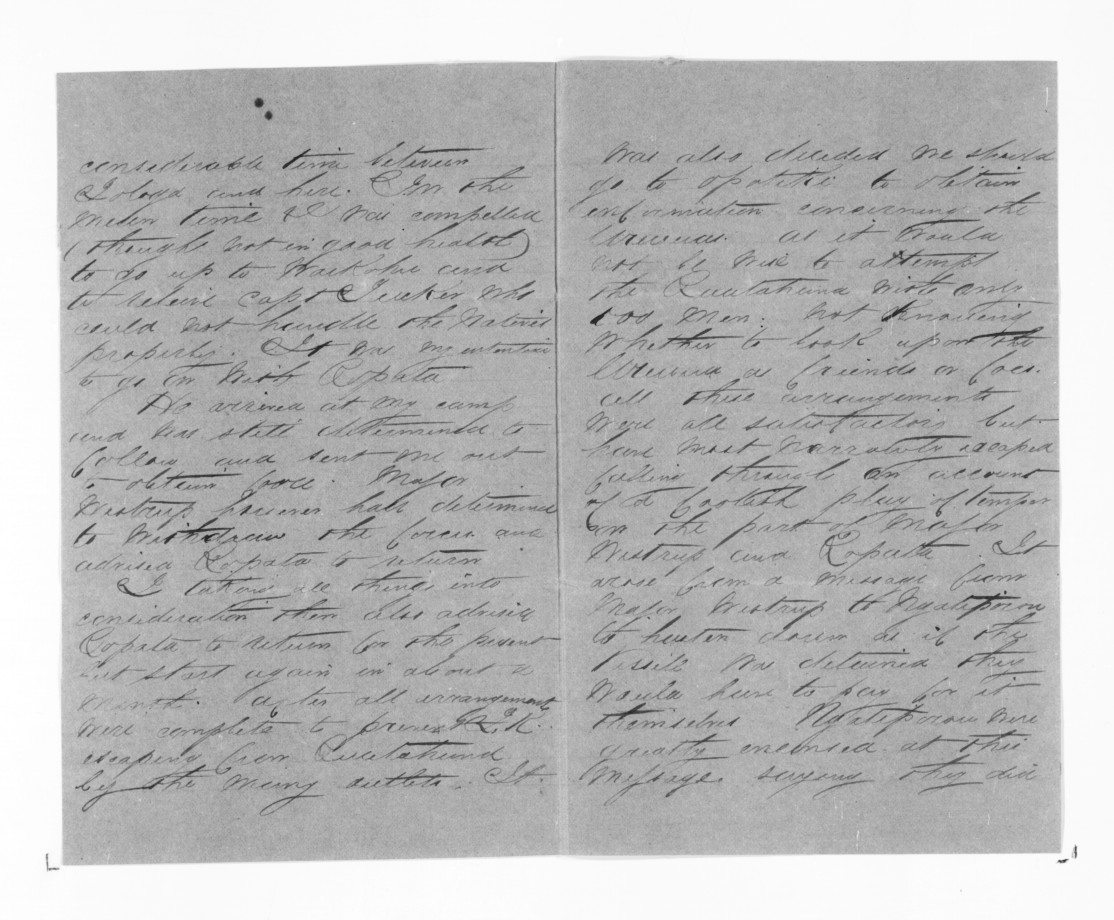 considerable time between
Tologa and here. In the
mean time I was compelled
(though not in good health)
to go up to and
to releive Capt Tucker who
could not handle the Natives
properly. It was my intention
to go on with Ropata
He arrived at my camp
and was still determined to
follow and sent me out
to obtain food. Major
Westrup however had determined
to withdraw the forces and
advised Ropata to return
I taking all things into
consideration then also advised
Ropata to return for the present
but start again in about a
month. after all arrangements
were complete to prevent T.K.
escaping from
by the many outlets. It
was also decided we should
go to Opotiki to obtain
information concerning the
Urewera. as it would
not be wise to attempt
the with only
100 men. Not knowing
whether to look upon the
Urewera as friends or foes.
all these arrangements
were all satisfactory but
have most narrowly escaped
falling through on account
of a foolish play of temper
on the part of Major
Westrup and Ropata. It
arose from a message from
Major Westrup to Ngatiporou
to hasten down as if the
vessel was detained they
would have to pay for it
themselves Ngatiporou were
greatly incensed at this
message saying they did